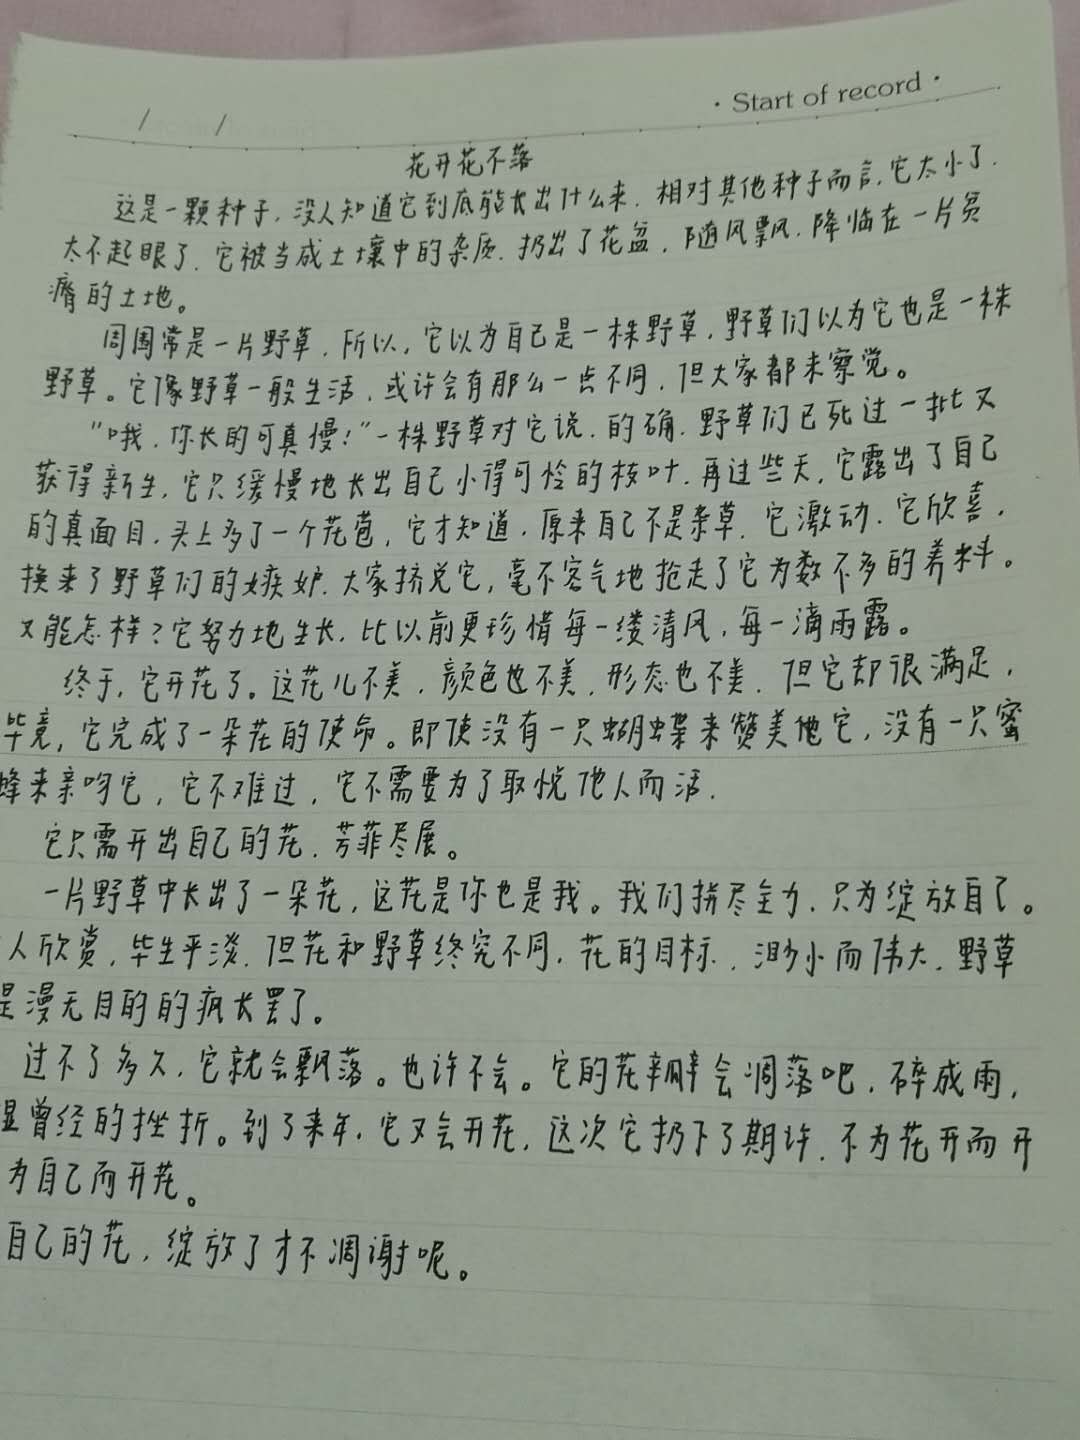 · Start of record ·
/ /
花开花不落
这是一颗种子,没人知道它到底能长出什么来,相对其他种子而言,它太小了,
太不起眼了,它被当成土壤中的杂质,扔出了花盆,随风飘,降临在一片贫
瘠的土地。
周围常是一片野草,所以,它以为自己是一株野草,野草们以为它也是一株
野草。它像野草一般生活,或许会有那么一点不同,但大家都未察觉。
“哦,你长的可真慢!”一株野草对它说,的确,野草们已死过一批又
获得新生,它只缓慢地长出自己小得可怜的枝叶,再过些天,它露出了自己
的真面目,头上多了一个花苞,它才知道,原来自己不是杂草,它激动,它欣喜,
换来了野草们的嫉妒,大家挤兑它,毫不客气地抢走了它为数不多的养料。
又能怎样?它努力地生长,比以前更珍惜每一缕清风,每一滴雨露。
终于,它开花了。这花儿不美,颜色也不美,形态也不美,但它却很满足,
毕竟,它完成了一朵花的使命。即使没有一只蝴蝶来赞美他它,没有一只蜜
蜂来亲吻它,它不难过,它不需要为了取悦他人而活,
它只需开出自己的花,芳菲尽展。
一片野草中长出了一朵花,这花是你也是我。我们拼尽全力,只为绽放自己。
人欣赏,毕生平淡,但花和野草终究不同,花的目标,渺小而伟大,野草
是漫无目的的疯长罢了。
过不了多久,它就会飘落。也许不会。它的花瓣会凋落吧,碎成雨,
曾经的挫折。到了来年,它又会开花,这次它扔下了期许,不为花开而开
为自己而开花。
自己的花,绽放了才不凋谢呢。